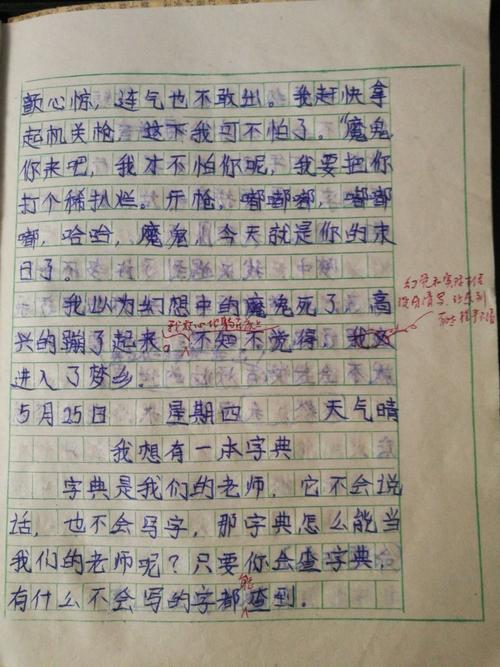 颤心惊，连气也不敢出。我赶快拿
起机关枪，这下我可不怕了。“魔鬼
你来吧，我才不怕你呢，我要把你
打个稀扒烂。开枪，嘟嘟嘟，嘟嘟
嘟，哈哈，魔鬼，今天就是你的末
日了。
我以为幻想中的魔鬼死了，高
兴的蹦了起来。不知不觉得，我
进入了梦乡
5月25日 星期四 天气晴
我想有一本字典
字典是我们的老师，它不会说
话，也不会写字，那字典怎么能当
我们的老师呢？只要你会查字典，
有什么不会写的字都能查到.